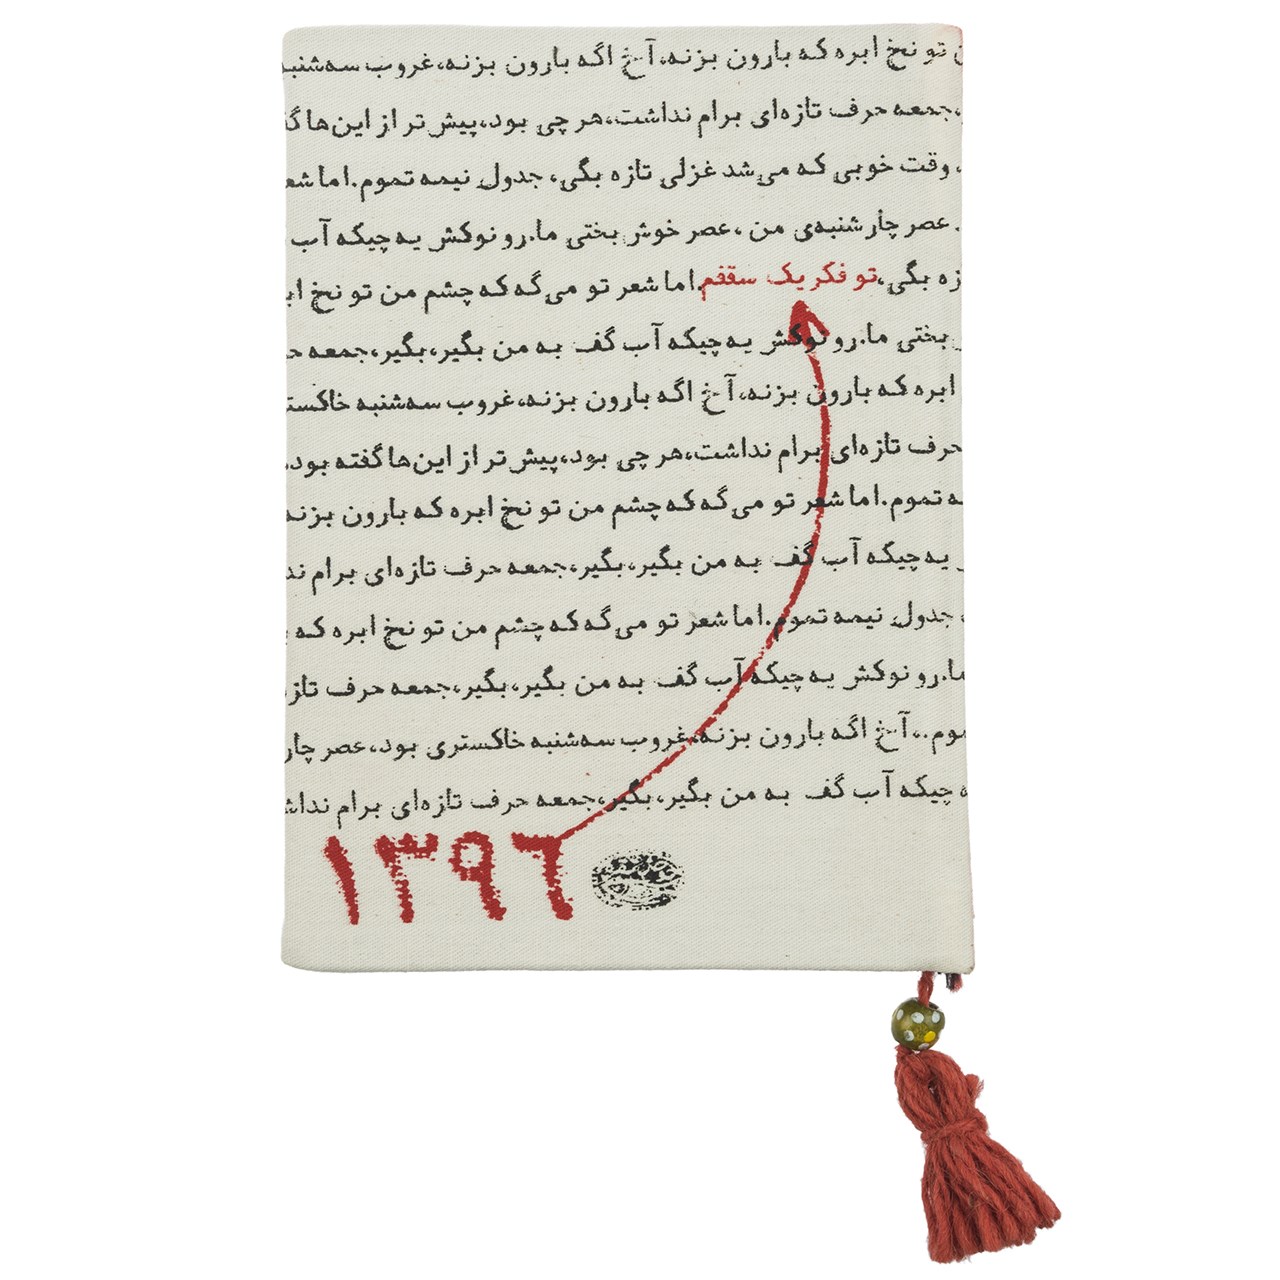 تو نخ ابره که بارون بزنه، آخ اگه بارون بزنه، غروب سه‌شنبه
، جمعه حرف تازه‌ای برام نداشت، هر چی بود، پیش تر از این‌ها گ
، وقت خوبی که می‌شد غزلی تازه بگی، جدول نیمه تموم. اما شعر
. عصر چارشنبه‌ی من ، عصر خوش بختی ما. رو نوکش یه چیکه آب
زه بگی، تو فکر یک سقفم. اما شعر تو می‌گه که چشم من تو نخ ابر
بختی ما. رو نوکش یه چیکه آب گف به من بگیر، بگیر، جمعه حر
ابره که بارون بزنه، آخ اگه بارون بزنه، غروب سه‌شنبه خاکست
حرف تازه‌ای برام نداشت، هر چی بود، پیش تر از این‌ها گفته بود،
ه تموم. اما شعر تو می‌گه که چشم من تو نخ ابره که بارون بزنه
یه چیکه آب گف به من بگیر، بگیر، جمعه حرف تازه‌ای برام ند
، جدول نیمه تموم. اما شعر تو می‌گه که چشم من تو نخ ابره که ب
ما. رو نوکش یه چیکه آب گف به من بگیر، بگیر، جمعه حرف تاز
موم . ، آخ اگه بارون بزنه، غروب سه‌شنبه خاکستری بود، عصر چار
ه چیکه آب گف به من بگیر، بگیر، جمعه حرف تازه‌ای برام نداش
۱۳۹۶